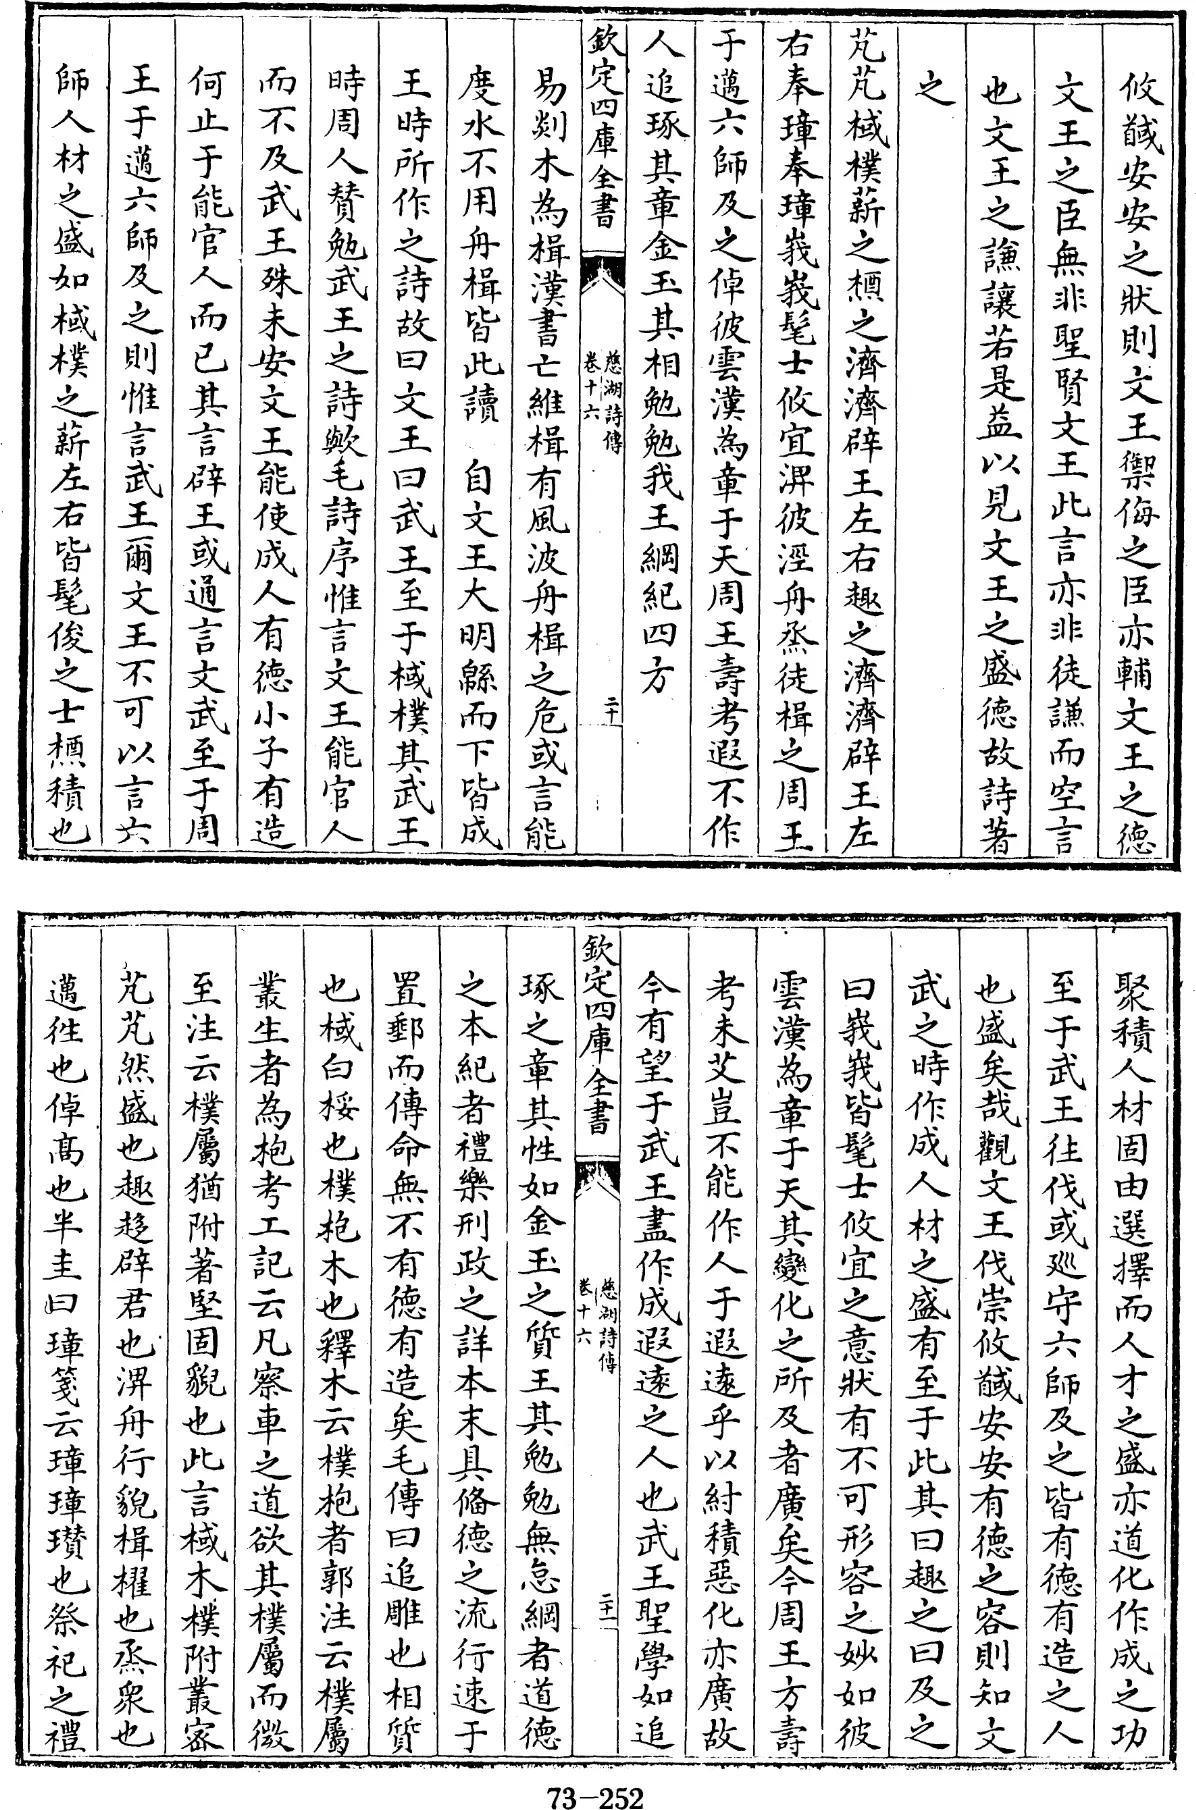 攸馘安安之狀則文王禦侮之臣亦輔文王之德
文王之臣無非聖賢文王此言亦非徒謙而空言
也文王之謙讓若是益以見文王之盛德故詩著
之
芃芃棫樸薪之槱之濟濟辟王左右趣之濟濟辟王左
右奉璋奉璋峩峩髦士攸宜淠彼涇舟烝徒楫之周王
于邁六師及之倬彼雲漢為章于天周王壽考遐不作
人追琢其章金玉其相勉勉我王綱紀四方
欽定四庫全書
慈湖詩傳
卷十六
二十
易剡木為楫漢書亡維楫有風波舟楫之危或言能
度水不用舟楫皆此讀 自文王大明緜而下皆成
王時所作之詩故曰文王曰武王至于棫樸其武王
時周人贊勉武王之詩歟毛詩序惟言文王能官人
而不及武王殊未安文王能使成人有德小子有造
何止于能官人而已其言辟王或通言文武至于周
王于邁六師及之則惟言武王爾文王不可以言六
師人材之盛如棫樸之薪左右皆髦俊之士槱積也
聚積人材固由選擇而人才之盛亦道化作成之功
至于武王往伐或巡守六師及之皆有德有造之人
也盛矣哉觀文王伐崇攸馘安安有德之容則知文
武之時作成人材之盛有至于此其曰趣之曰及之
曰峩峩皆髦士攸宜之意狀有不可形容之妙如彼
雲漢為章于天其變化之所及者廣矣今周王方壽
考未艾豈不能作人于遐遠乎以紂積惡化亦廣故
今有望于武王盡作成遐遠之人也武王聖學如追
欽定四庫全書
慈湖詩傳
卷十六
二十一
琢之章其性如金玉之質王其勉勉無怠綱者道德
之本紀者禮樂刑政之詳本末具偹德之流行速于
置郵而傳命無不有德有造矣毛傳曰追雕也相質
也棫白桵也樸枹木也釋木云樸枹者郭注云樸屬
叢生者為枹考工記云凡察車之道欲其樸屬而微
至注云樸屬猶附著堅固貌也此言棫木樸附叢宻
芃芃然盛也趣趍辟君也淠舟行貌楫櫂也烝衆也
邁徃也倬髙也半圭曰璋箋云璋璋瓚也祭祀之禮
73-252